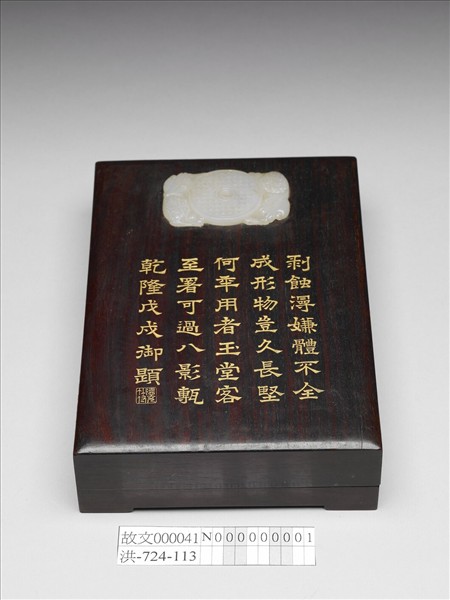 剥蝕潯嫌體不全
成形物豈久長堅
何年用者玉堂客
至署可過八影甎
乾隆戊戌御題
故文000041N0000000001
洪-724-113